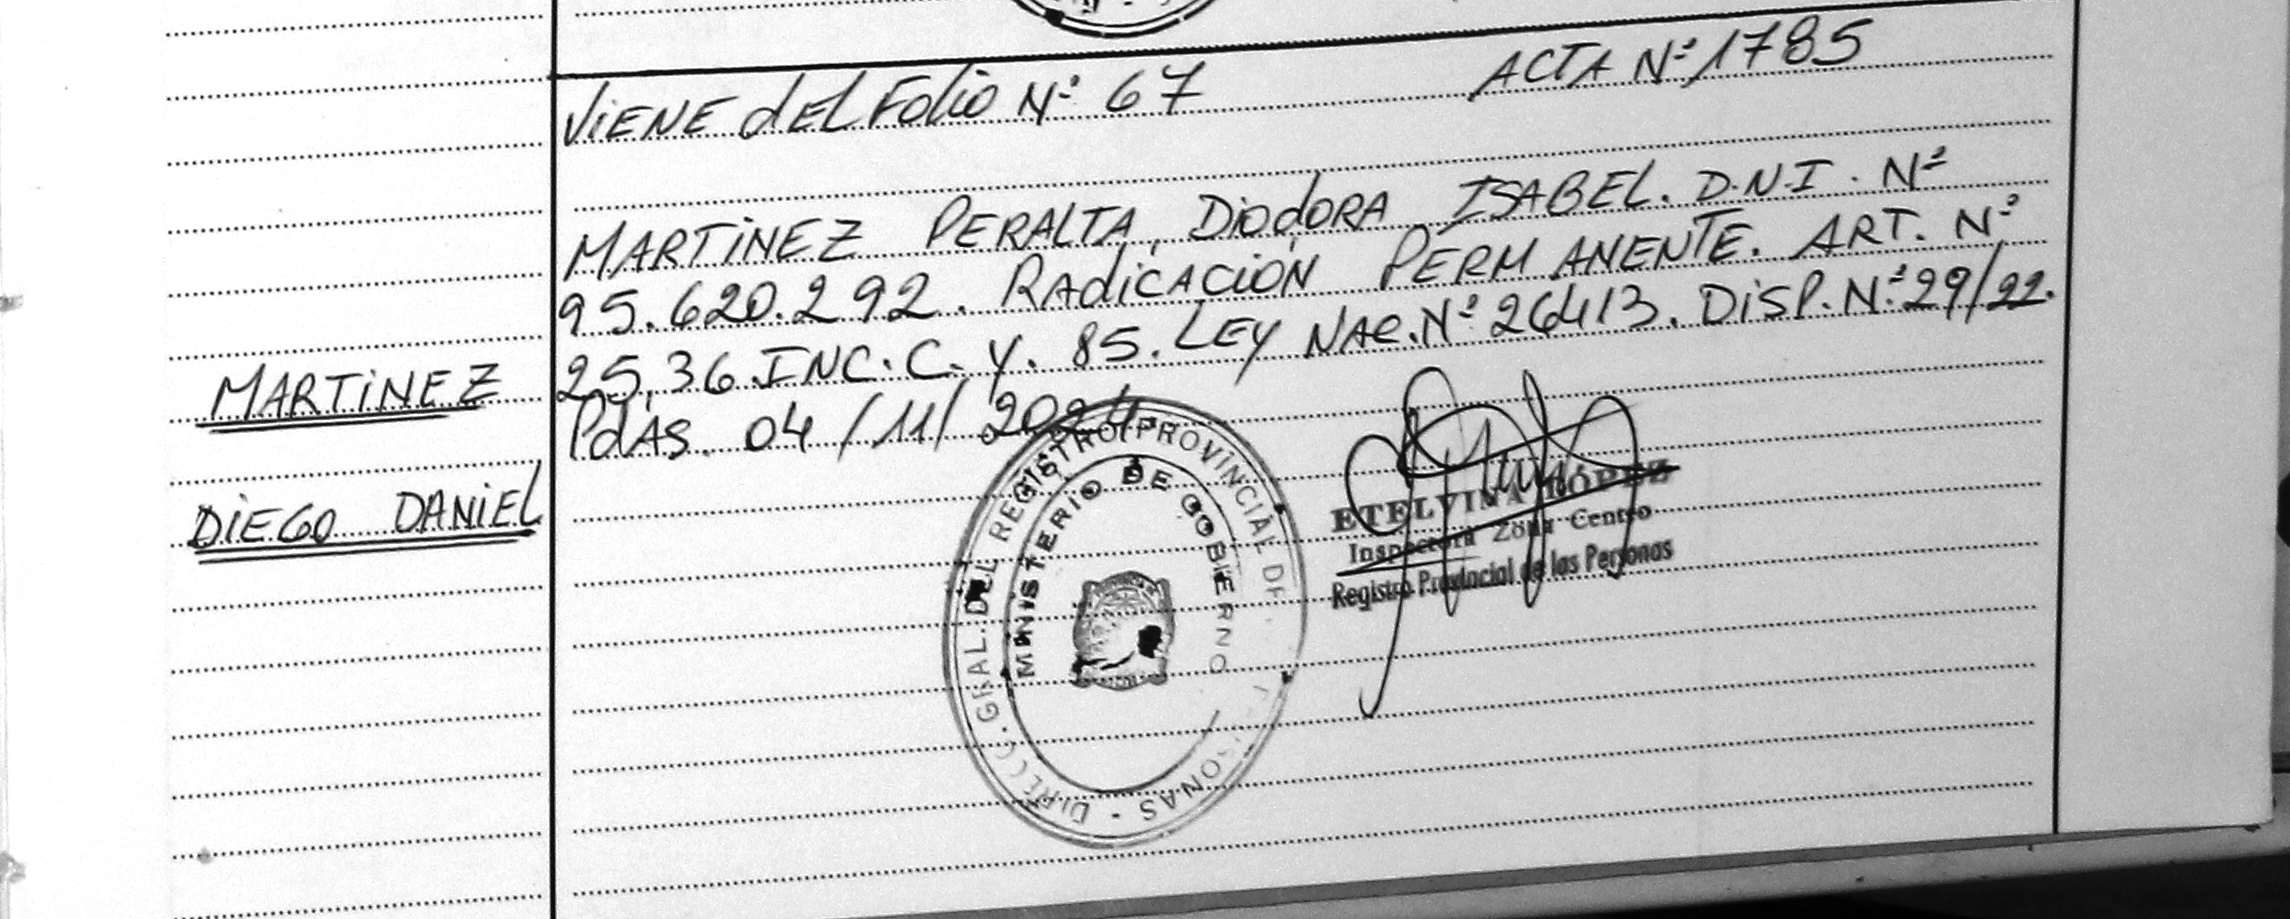 VIENE dEL Folio Nº 67 ACTA Nº 1785
MARTINEZ PERALTA, DiodORA ISABEL. D.N.I. Nº
95.620.292. RAdiCACIÓN PERMANENTE. ART. Nº
25,36.INC.C. Y. 85. LEY NAC.Nº 26413. DISP.Nº29/22.
PdAS. 04/11/2024
MARTINEZ
DIEGO DANIEL
DIRECC. GRAL. DEL REGISTRO PROVINCIAL DE
MINISTERIO DE GOBIERNO
ETELVINA LÓPEZ
Inspectora Zona Centro
Registro Provincial de las Personas